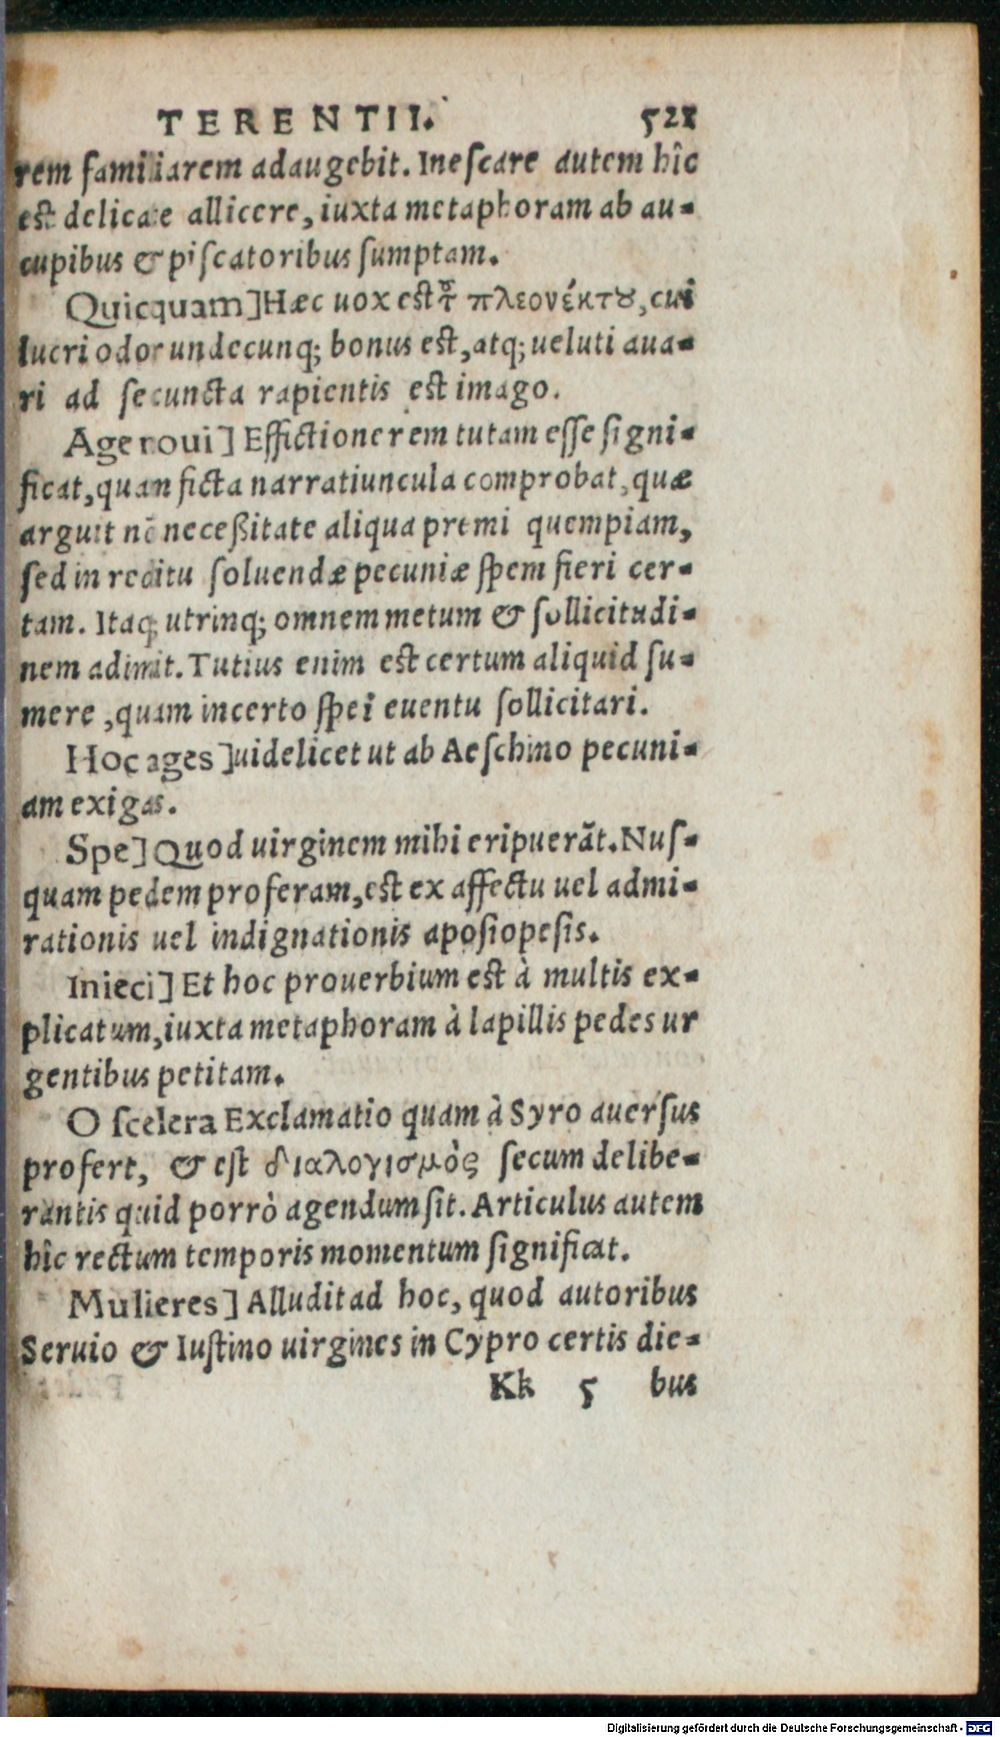 TERENTII. 521
rem familiarem adaugebit. Inescare autem hîc
est delicate allicere, iuxta metaphoram ab au-
cupibus & piscatoribus sumptam.
Quicquam] Hæc uox est τ πλεονέκτȣ, cui
lucri odor undecunq; bonus est, atq; ueluti aua-
ri ad se cuncta rapientis est imago.
Age noui] Effictione rem tutam esse signi-
ficat, quan ficta narratiuncula comprobat, quæ
arguit nō necessitate aliqua premi quempiam,
sed in reditu soluendæ pecuniæ spem fieri cer-
tam. Itaq; utrinq; omnem metum & sollicitudi-
nem adimit. Tutius enim est certum aliquid su-
mere, quam incerto spei euentu sollicitari.
Hoc ages] uidelicet ut ab Aeschino pecuni-
am exigas.
Spe] Quod uirginem mihi eripuerāt. Nus-
quam pedem proferam, est ex affectu uel admi-
rationis uel indignationis aposiopesis.
Inieci] Et hoc prouerbium est à multis ex-
plicatum, iuxta metaphoram à lapillis pedes ur
gentibus petitam.
O scelera Exclamatio quam à Syro auersus
profert, & est διαλογισμὸς secum delibe-
rantis quid porrò agendum sit. Articulus autem
hîc rectum temporis momentum significat.
Mulieres] Alludit ad hoc, quod autoribus
Seruio & Iustino uirgines in Cypro certis die-
Kk 5 bus
Digitalisierung gefördert durch die Deutsche Forschungsgemeinschaft - DFG